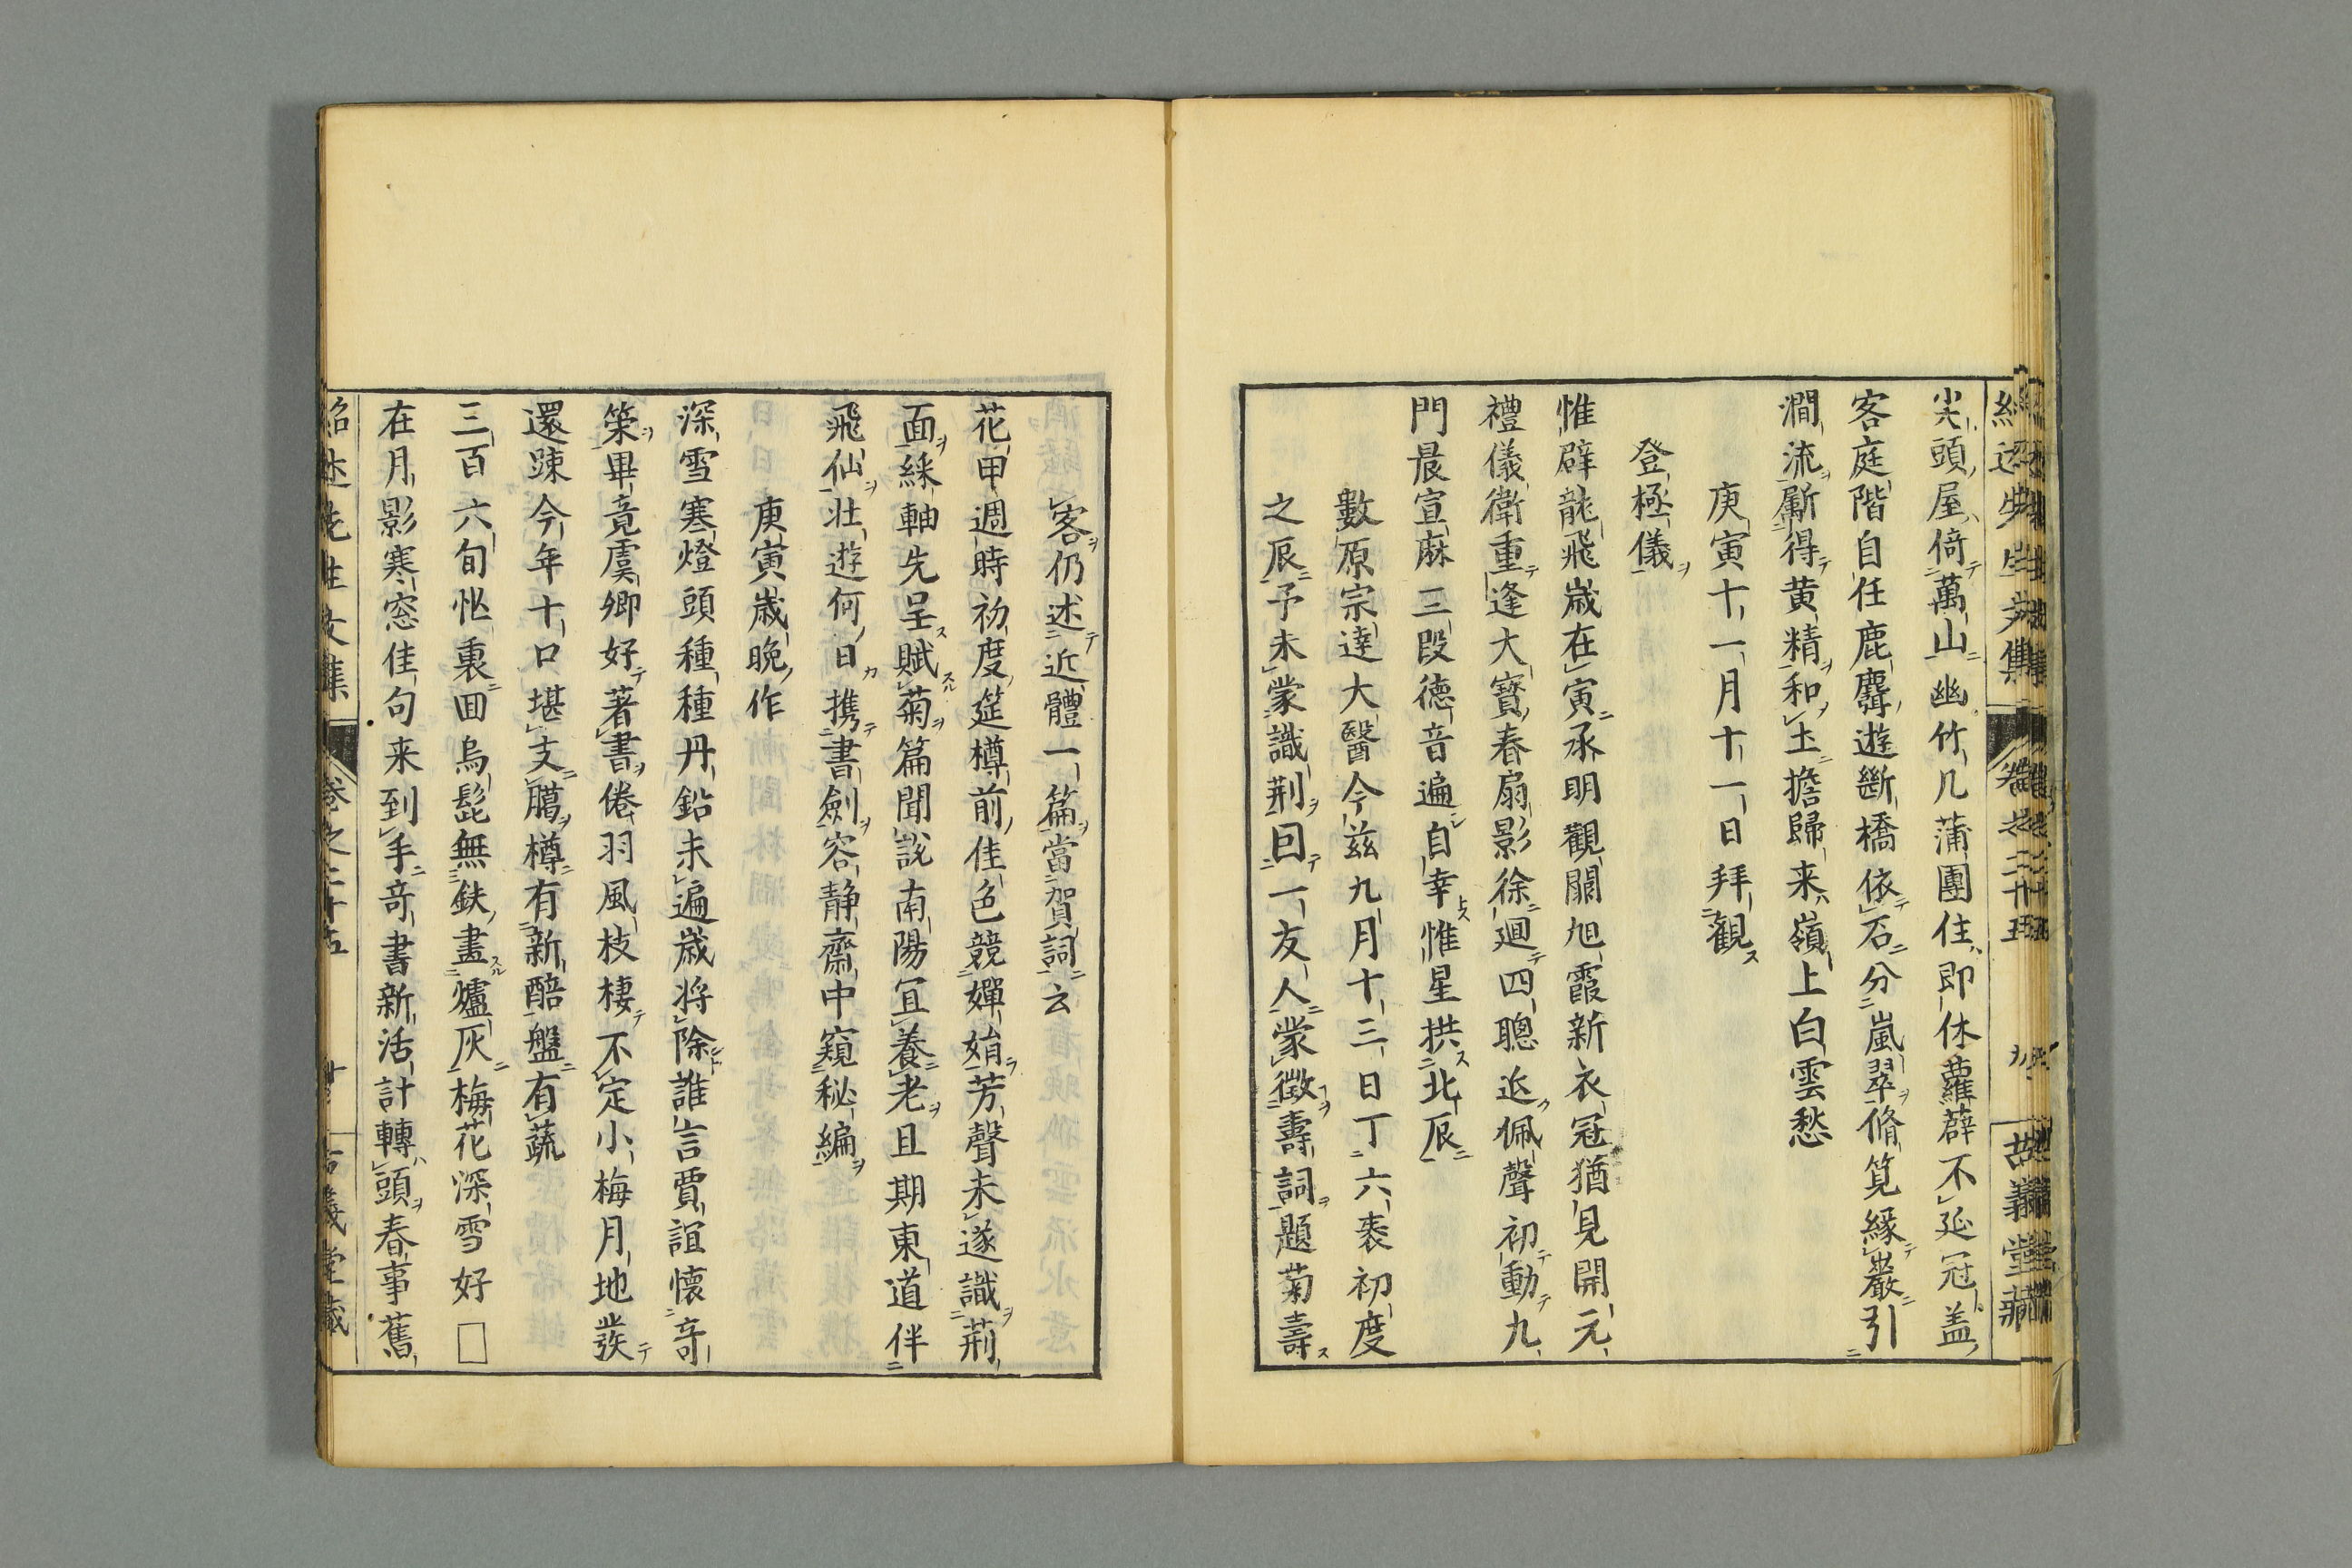 尖頭屋倚萬山幽竹几蒲團住即休蘿薜不延冠盖
客庭階自任鹿麛遊斷橋依石分嵐翠脩筧緣巖引
澗流斸得黄精和土擔歸来嶺上白雲愁
庚寅十一月十一日拜觀
登極儀
惟辟龍飛歳在寅承明觀闕旭霞新衣冠猶見開元
禮儀衛重逢大寶春扇影徐廻四聰迩佩聲初動九
門晨宣麻三段徳音遍自幸惟星拱北辰
數原宗達大醫今兹九月十三日丁六袠初度
之辰予未蒙識荊囙一友人蒙徴壽詞題菊壽
客仍述近體一篇當賀詞云
花甲週時初度筵樽前佳色競嬋娟芳聲未遂識荊
面綵軸先呈賦菊篇聞說南陽宜養老且期東道伴
飛仙壮遊何日携書劍容静齋中窺秘編
庚寅歳晩作
深雪寒燈頭種種丹鉛未遍歳将除誰言賈誼懷竒
策畢竟虞卿好著書倦羽風枝棲不定小梅月地發
還踈今年十口堪支臈樽有新醅盤有蔬
三百六旬忙裏囬烏髭無鉄畫爐灰梅花深雪好□
在月影寒窓佳句来到手竒書新活計轉頭春事舊
紹述先生文集
卷之二十五
九
古義堂藏
紹述先生文集
卷之二十五
十
古義堂藏